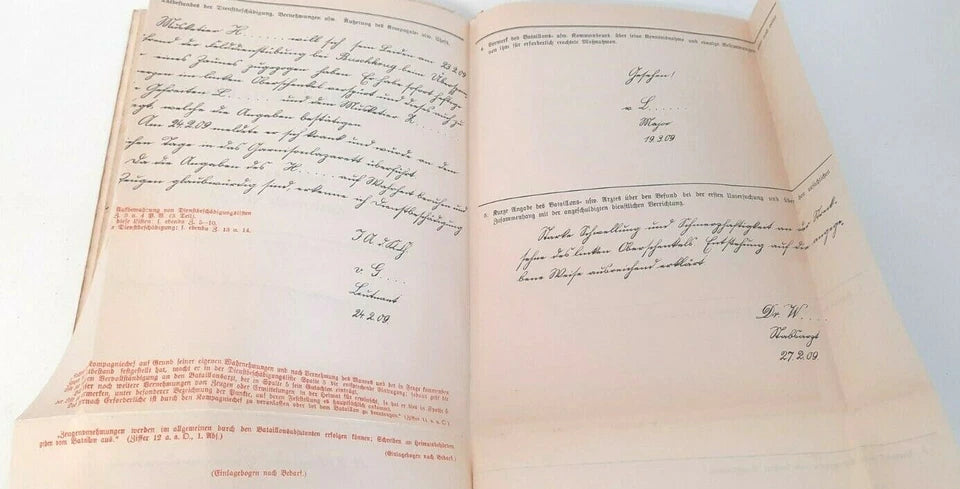 Tatbestandes der Dienstbeschädigung. Vernehmungen usw. Äußerung des Kompagnie- usw. Chefs.
Musketier H...... will sich sein Leiden am 23.2.09
der Felddienstübung bei beim
eines Zaunes zugezogen haben. Er habe sofort heftige
im linken Oberschenkel verspürt und dies auch
Gefreiten L...... und dem Musketier K......
welche die Angaben bestätigen
Am 24.2.09 meldete er sich krank und wurde an dem
Tage in das Garnisonlazarett überführt
Da die Angaben des H...... auf Wahrheit beruhen und
Zeugen glaubwürdig sind erkenne ich Dienstbeschädigung
Aufbewahrung von Dienstbeschädigungslisten
Z. 3 u. 4 P. V. (3. Teil).
dieser Listen: f. ebenda Z. 5—10.
Dienstbeschädigung: f. ebenda Z. 13 u. 14.
v. G....
Leutnant
24.2.09.
Kompagniechef auf Grund seiner eigenen Wahrnehmungen und nach Vernehmung des Mannes und der in Frage kommenden
festgestellt hat, macht er in der Dienstbeschädigungsliste Spalte 3 die entsprechende Eintragung;
an den Bataillonsarzt, der in Spalte 5 sein Gutachten einträgt.
noch weitere Vernehmungen von Zeugen oder Ermittelungen in der Heimat für
unter besonderer Bezeichnung der Punkte, auf deren Feststellung es hauptsächlich ankommt.
Erforderliche ist durch den Kompagniechef zu veranlassen oder bei dem Bataillon zu beantragen." (Ziffer 11 a. a. O.)
„Zeugenvernehmungen werden im allgemeinen durch den Bataillonsadjutanten erfolgen können; Schreiben an Heimatbehörden
gehen vom Bataillon aus." (Ziffer 12 a. a. O., 1. Abs.)
(Einlagebogen nach Bedarf.)
(Einlagebogen nach Bedarf.)
4. Vermerk des Bataillons- usw. Kommandeurs über seine Kenntnisnahme und etwaige
von ihm für erforderlich erachtete Maßnahmen.
Gesehen!
v. L......
Major
19.3.09
5. Kurze Angabe des Bataillons- usw. Arztes über den Befund bei der ersten Untersuchung und über den ursächlichen
Zusammenhang mit der angeschuldigten dienstlichen Verrichtung.
Starke Schwellung und Schmerzhaftigkeit an der
sehne des linken Oberschenkels Entstehung auf die angege-
bene Weise ausreichend erklärt
Dr. W....
Stabsarzt
27.2.09